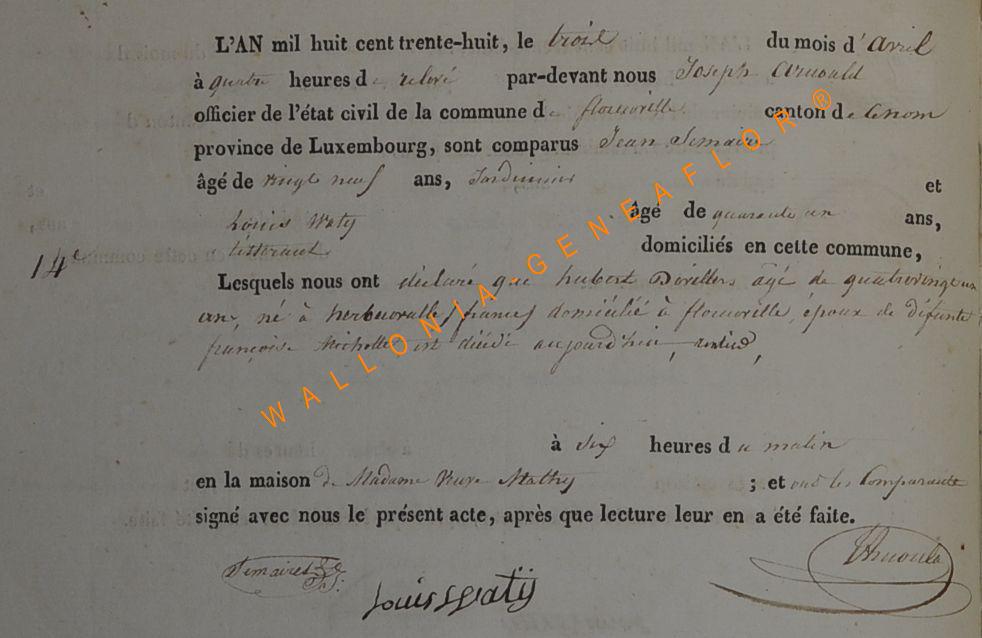 L'AN mil huit cent trente-huit, le trois du mois d'avril
à quatre heures de relevé par-devant nous Joseph Arnould
officier de l'état civil de la commune de florenville canton de
province de Luxembourg, sont comparus Jean Lemaire
âgé de vingt neuf ans, Jardinier et
Louis Waty âgé de quarante un ans,
domiciliés en cette commune,
14e
Lesquels nous ont déclaré que hubert Devillers agé de quatrevingt un
an, né à herbeuvalle (france) domicilié à florenville, époux de défunte
françoise est décédé aujourd'hui,
à six heures du matin
en la maison de Madame Veuve Mathy ; et ont les Comparants
signé avec nous le présent acte, après que lecture leur en a été faite.
Lemaire
Louis Watÿ
Arnould
WALLONIA-GENEAFLOR ®